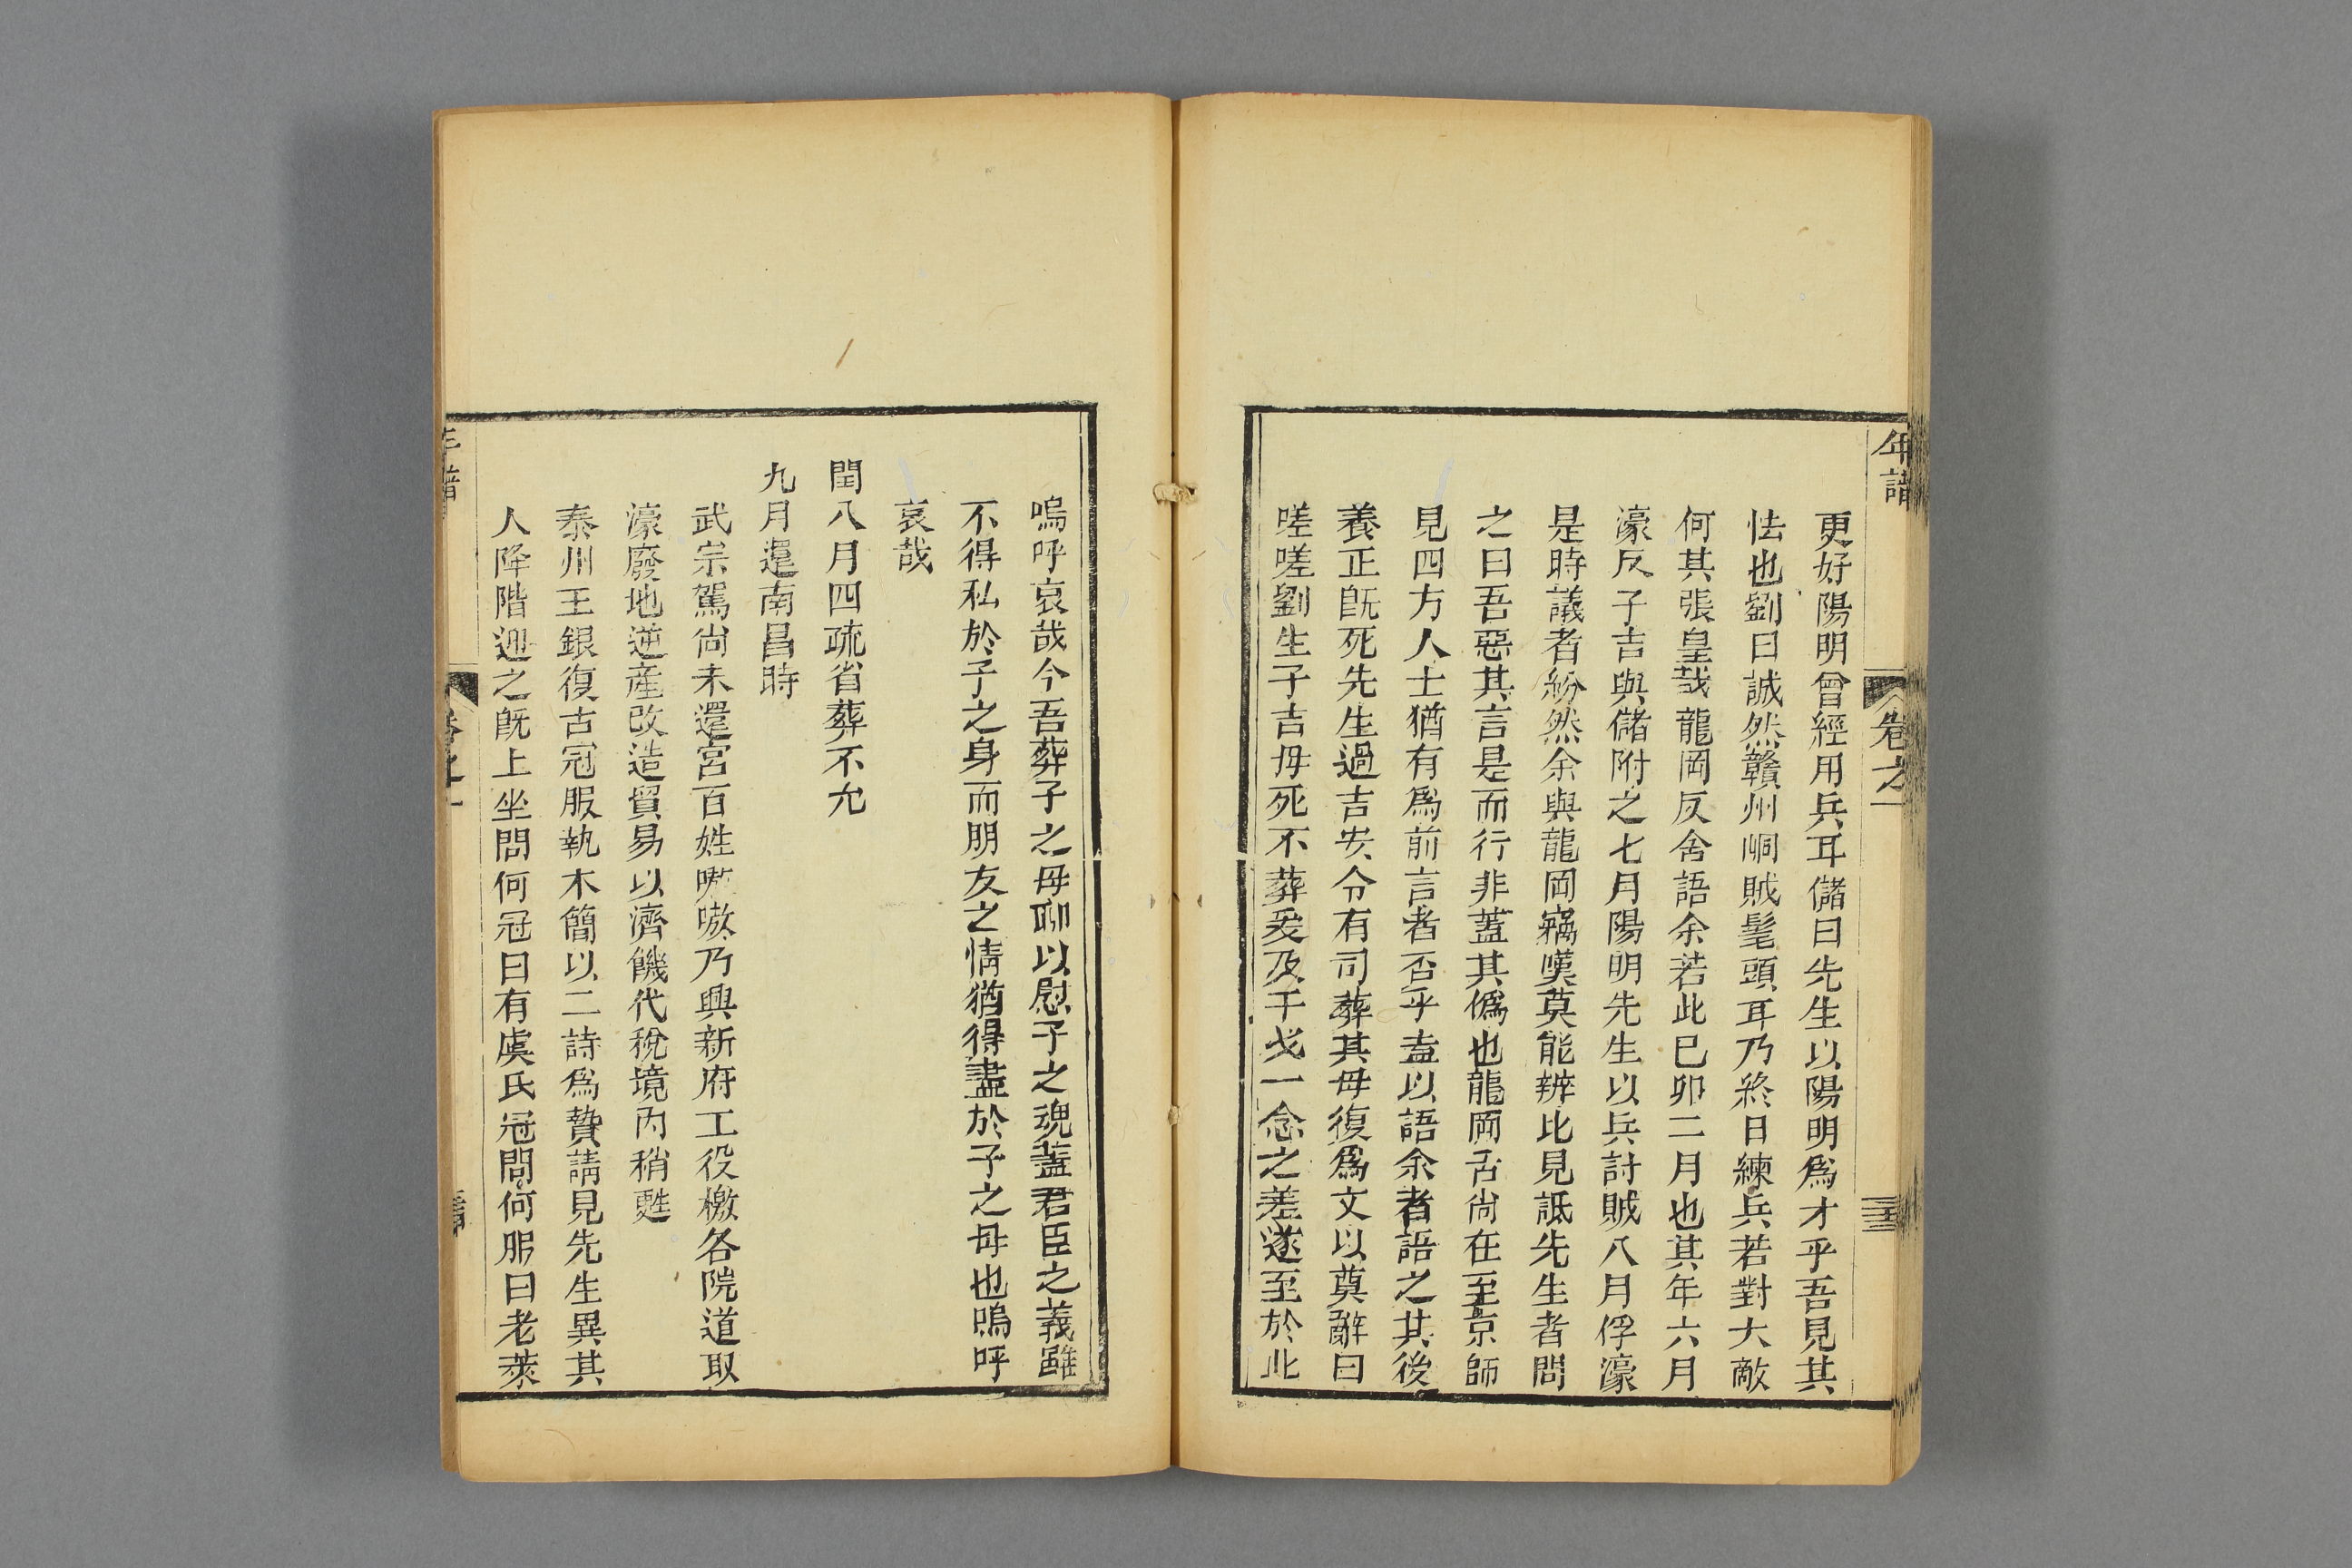 年譜
卷之一
更好陽明曾經用兵耳儲曰先生以陽明爲才乎吾見其
怯也劉曰誠然贛州峒賊髦頭耳乃終日練兵若對大敵
何其張皇哉龍岡反舍語余若此已卯二月也其年六月
濠反子吉與儲附之七月陽明先生以兵討賊八月俘濠
是時議者紛然余與龍岡竊嘆莫能辨比見詆先生者問
之曰吾惡其言是而行非蓋其僞也龍岡舌尚在至京師
見四方人士猶有爲前言者否乎盍以語余者語之其後
養正旣死先生過吉安令有司葬其母復爲文以奠辭曰
嗟嗟劉生子吉母死不葬爰及干戈一念之差遂至於此
嗚呼哀哉今吾葬子之母聊以慰子之魂蓋君臣之義雖
不得私於子之身而朋友之情猶得盡於子之母也嗚呼
哀哉
閏八月四疏省葬不允
九月還南昌時
武宗駕尚未還宮百姓嗷嗷乃興新府工役檄各院道取
濠廢地逆產改造貿易以濟饑代稅境內稍甦
泰州王銀復古冠服執木簡以二詩爲贄請見先生異其
人降階迎之旣上坐問何冠曰有虞氏冠問何服曰老萊